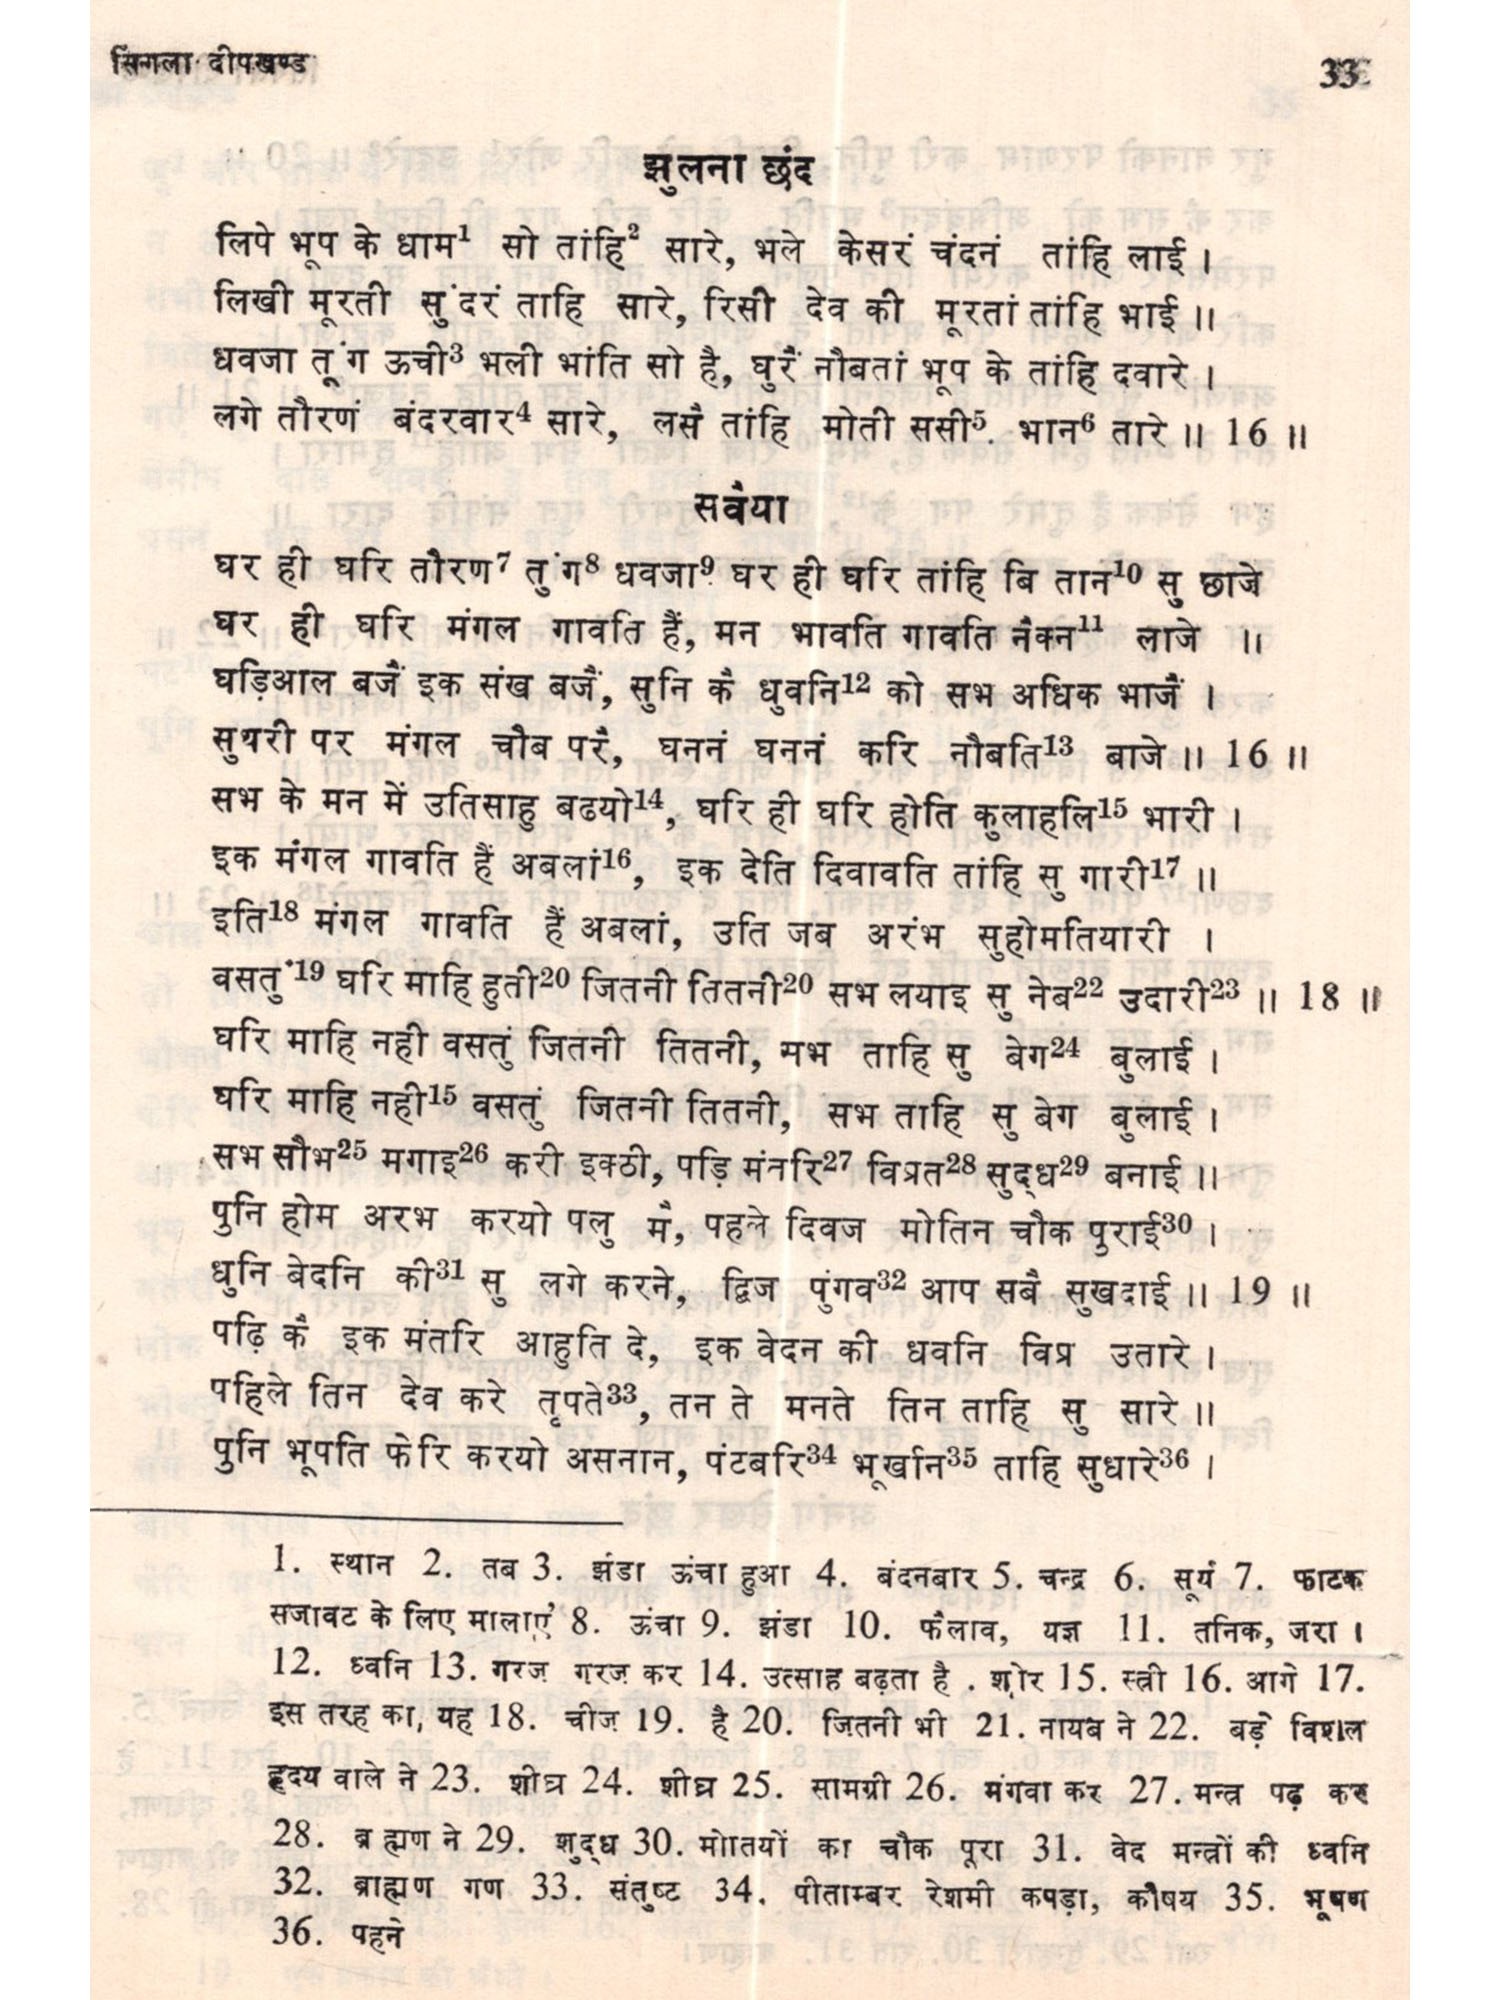 सिंगला दीपखण्ड
33
झुलना छंद
लिपे भूप के धाम¹ सो तांहि² सारे, भले केसरं चंदनं तांहि लाई ।
लिखी मूरती सुंदरं ताहि सारे, रिसी देव की मूरतां तांहि भाई ॥
धवजा तूंग ऊची³ भली भांति सो है, घुरैं नौबतां भूप के तांहि दवारे ।
लगे तौरणं बंदरवार⁴ सारे, लसै तांहि मोती ससी⁵. भान⁶ तारे ॥ 16 ॥
सवैया
घर ही घरि तौरण⁷ तुंग⁸ धवजा⁹ घर ही घरि तांहि बि तान¹⁰ सु छाजे
घर ही घरि मंगल गावति हैं, मन भावति गावति नैक्न¹¹ लाजे ॥
घड़िआल बजैं इक संख बजैं, सुनि कै धुवनि¹² को सभ अधिक भाजैं ।
सुथरी पर मंगल चौब परै, घननं घननं करि नौबति¹³ बाजे ॥ 16 ॥
सभ के मन में उतिसाहु बढयो¹⁴, घरि ही घरि होति कुलाहलि¹⁵ भारी ।
इक मंगल गावति हैं अबलां¹⁶, इक देति दिवावति तांहि सु गारी¹⁷ ॥
इति¹⁸ मंगल गावति हैं अबलां, उति जब अरंभ सुहोमतियारी ।
वसतुं¹⁹ घरि माहि हुती²⁰ जितनी तितनी²⁰ सभ लयाइ सु नेब²² उदारी²³ ॥ 18 ॥
घरि माहि नही वसतुं जितनी तितनी, मभ ताहि सु बेग²⁴ बुलाई ।
घरि माहि नही¹⁵ वसतुं जितनी तितनी, सभ ताहि सु बेग बुलाई ।
सभ सौभ²⁵ मगाइ²⁶ करी इक्ठी, पड़ि मंनरि²⁷ विप्रत²⁸ सुद्ध²⁹ बनाई ॥
पुनि होम अरभ करयो पलु मै, पहले दिवज मोतिन चौक पुराई³⁰ ।
धुनि बेदनि की³¹ सु लगे करने, द्विज पुंगव³² आप सबै सुखदाई ॥ 19 ॥
पढ़ि कै इक मंतरि आहुति दे, इक वेदन की धवनि विप्र उतारे ।
पहिले तिन देव करे तृपते³³, तन ते मनते तिन ताहि सु सारे ॥
पुनि भूपति फेरि करयो असनान, पंटबरि³⁴ भूर्खान³⁵ ताहि सुधारे³⁶ ।
1. स्थान 2. तब 3. झंडा ऊंचा हुआ 4. बंदनबार 5. चन्द्र 6. सूर्य 7. फाटक
सजावट के लिए मालाएं 8. ऊंचा 9. झंडा 10. फैलाव, यज्ञ 11. तनिक, जरा ।
12. ध्वनि 13. गरज़ गरज़ कर 14. उत्साह बढ़ता है . शोर 15. स्त्री 16. आगे 17.
इस तरह का, यह 18. चीज़ 19. है 20. जितनी भी 21. नायब ने 22. बड़े विशाल
हृदय वाले ने 23. शीघ्र 24. शीघ्र 25. सामग्री 26. मंगवा कर 27. मन्त्र पढ़ कर
28. ब्रह्मण ने 29. शुद्ध 30. मोतियों का चौक पूरा 31. वेद मन्त्रों की ध्वनि
32. ब्राह्मण गण 33. संतुष्ट 34. पीताम्बर रेशमी कपड़ा, कौषय 35. भूषण
36. पहने